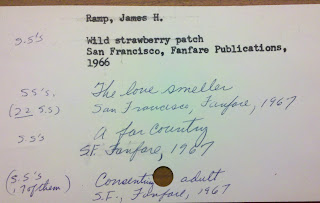 Ramp, James H.
S.S's Wild strawberry patch
San Francisco, Fanfare Publications,
1966
S.S's. The love smeller
(22 S.S) San Francisco, Fanfare, 1967
S.S's A far country
S.F. Fanfare, 1967
(S.S's Consenting adult
17 of them) S.F., Fanfare, 1967